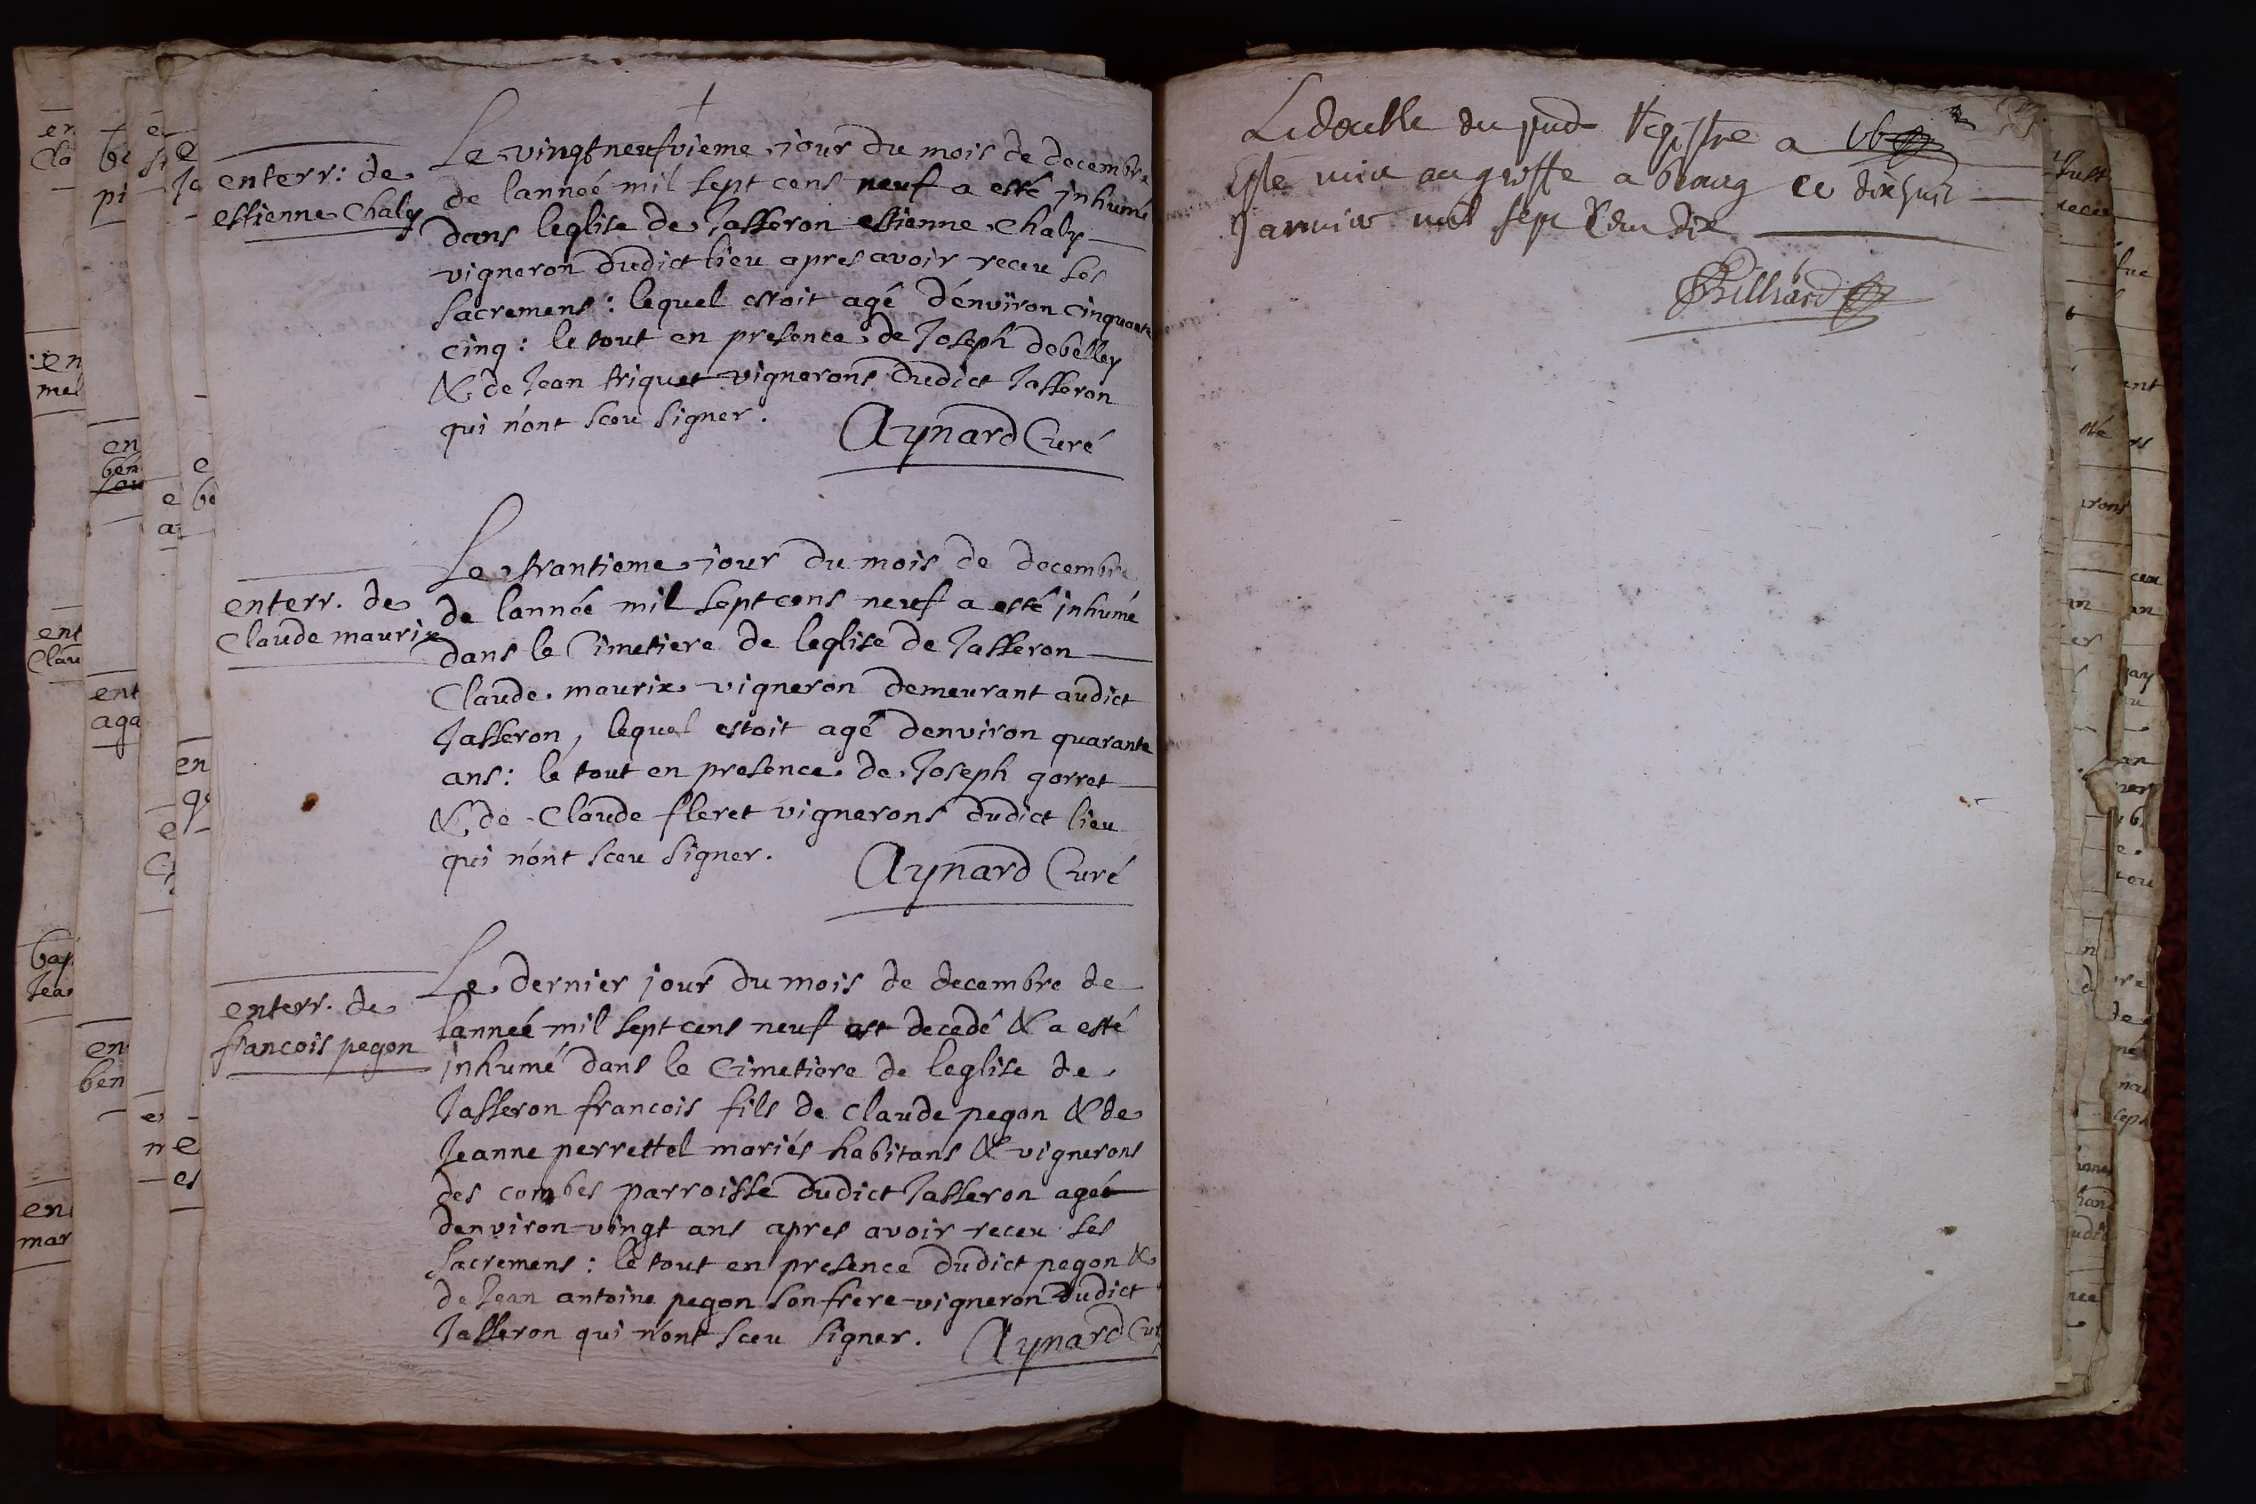 enterr: de
estienne Chaly
Le vingt neufvieme jour du mois de decembre
de lanneé mil sept cens neuf a esté inhumé
dans leglise de Jasseron estienne Chaly
vigneron dudict lieu apres avoir receu ses
sacremens : lequel estoit agé d'environ cinquante
cinq : le tout en presence de Joseph debelley
& de Jean triquet vignerons dudict Jasseron
qui n'ont sceu signer.
Aynard Curé
enterr. de
Claude maurix
Le trantieme jour du mois de decembre
de lannée mil sept cens neuf a esté inhumé
dans le Cimetiere de leglise de Jasseron
Claude maurix vigneron demeurant audict
Jasseron, lequel estoit agé denviron quarante
ans : le tout en presence de Joseph gorret
& de Claude fleret vignerons dudict lieu
qui n'ont sceu signer.
Aynard Curé
enterr. de
francois pegon
Le dernier jour du mois de decembre de
lanneé mil sept cens neuf est decedé & a esté
inhumé dans le Cimetiere de leglise de
Jasseron francois fils de Claude pegon & de
Jeanne perrettel mariés habitans & vignerons
des combes parroisse dudict Jasseron agé
denviron vingt ans apres avoir receu ses
sacremens : le tout en presence dudict pegon &
de Jean antoine pegon son frere vigneron dudict
Jasseron qui n'ont sceu signer.
Aynard Cur
Le double du pnd Registre a
Esté mis au greffe a bourg ce dixhuit
Janvier mil sept Cent dix
Billiard